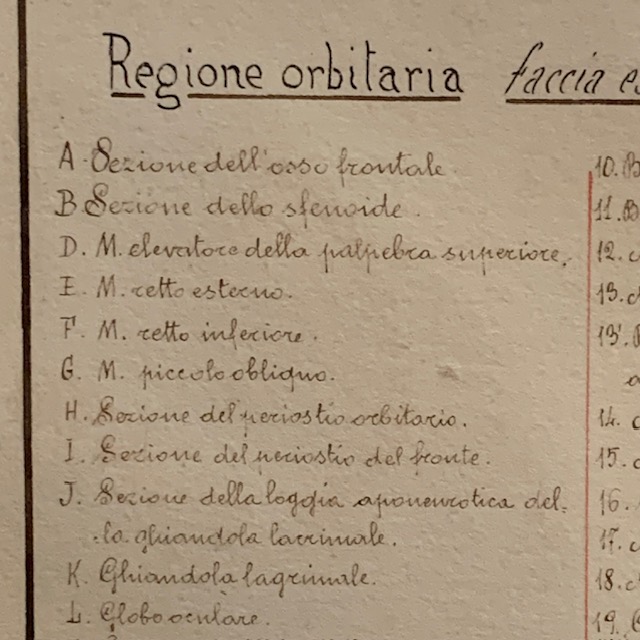 Regione orbitaria faccia es
A Sezione dell'osso frontale.
B Sezione dello sfenoide.
D. M. elevatore della palpebra superiore.
E. M. retto esterno.
F. M. retto inferiore.
G. M. piccolo obliquo.
H. Sezione del periostio orbitario.
I. Sezione del periostio del fronte.
J. Sezione della loggia aponeurotica del-
la ghiandola lacrimale.
K. Ghiandola lagrimale.
L. Globo oculare.
10.
11.
12.
13.
13'.
14.
15.
16.
17.
18.
19.